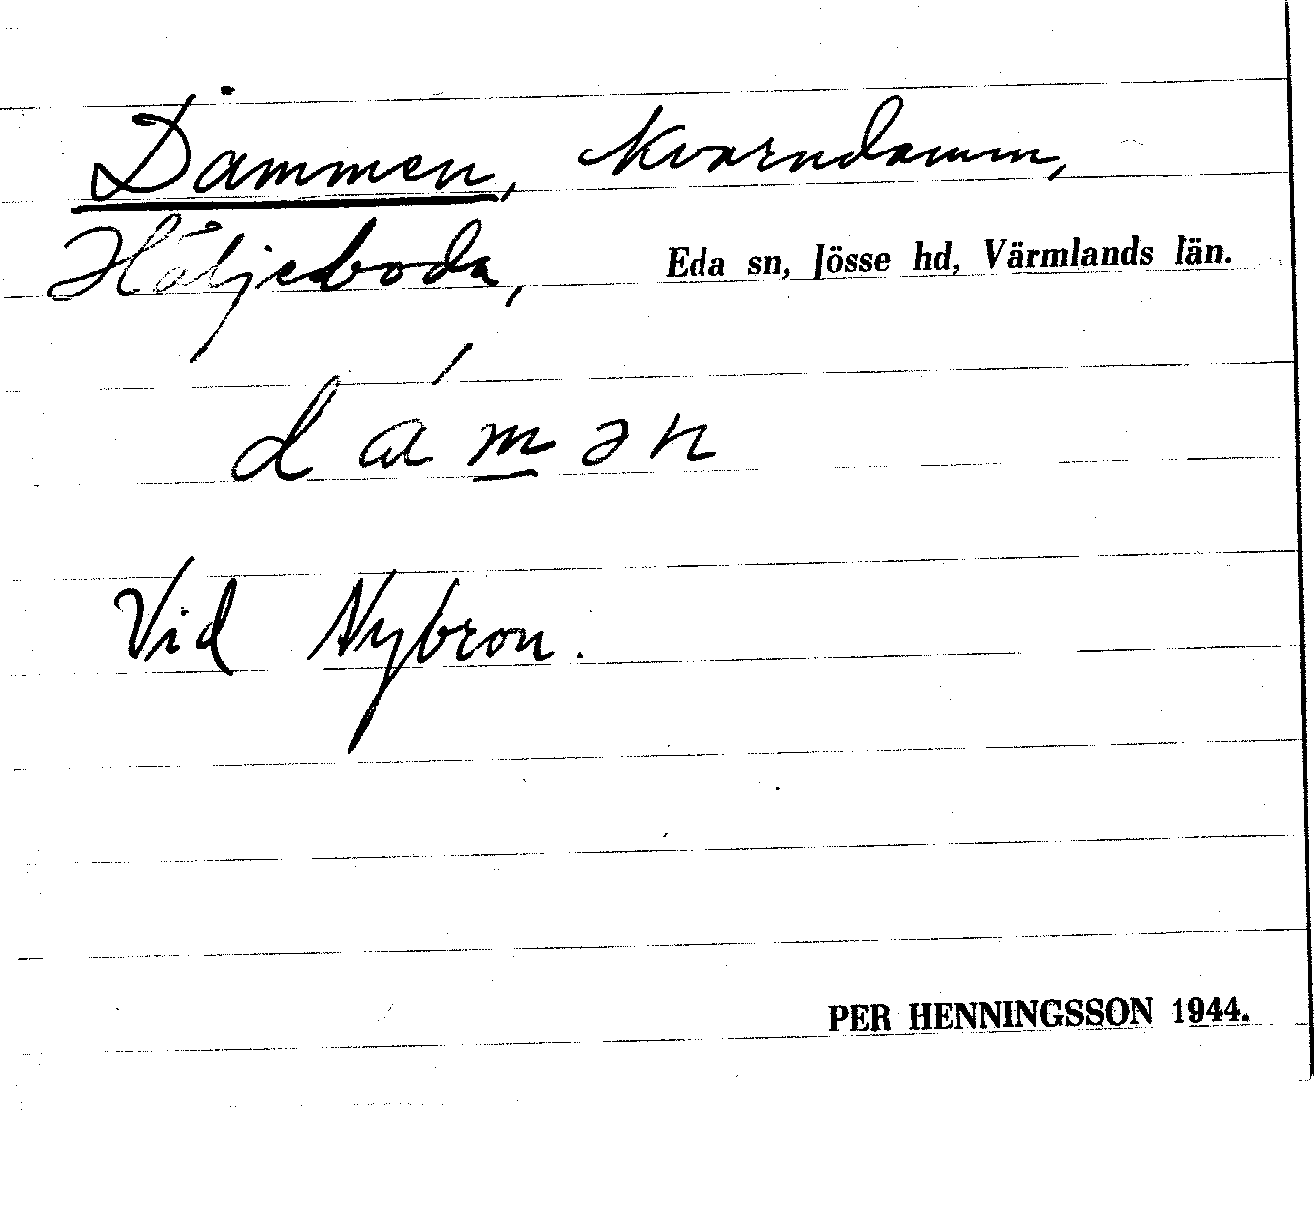 Dammen, kvarndamm,
Häljeboda, Eda sn, Jösse hd, Värmlands län.
d a ́ m̲ ə n
Vid Nybron.
PER HENNINGSSON 1944.